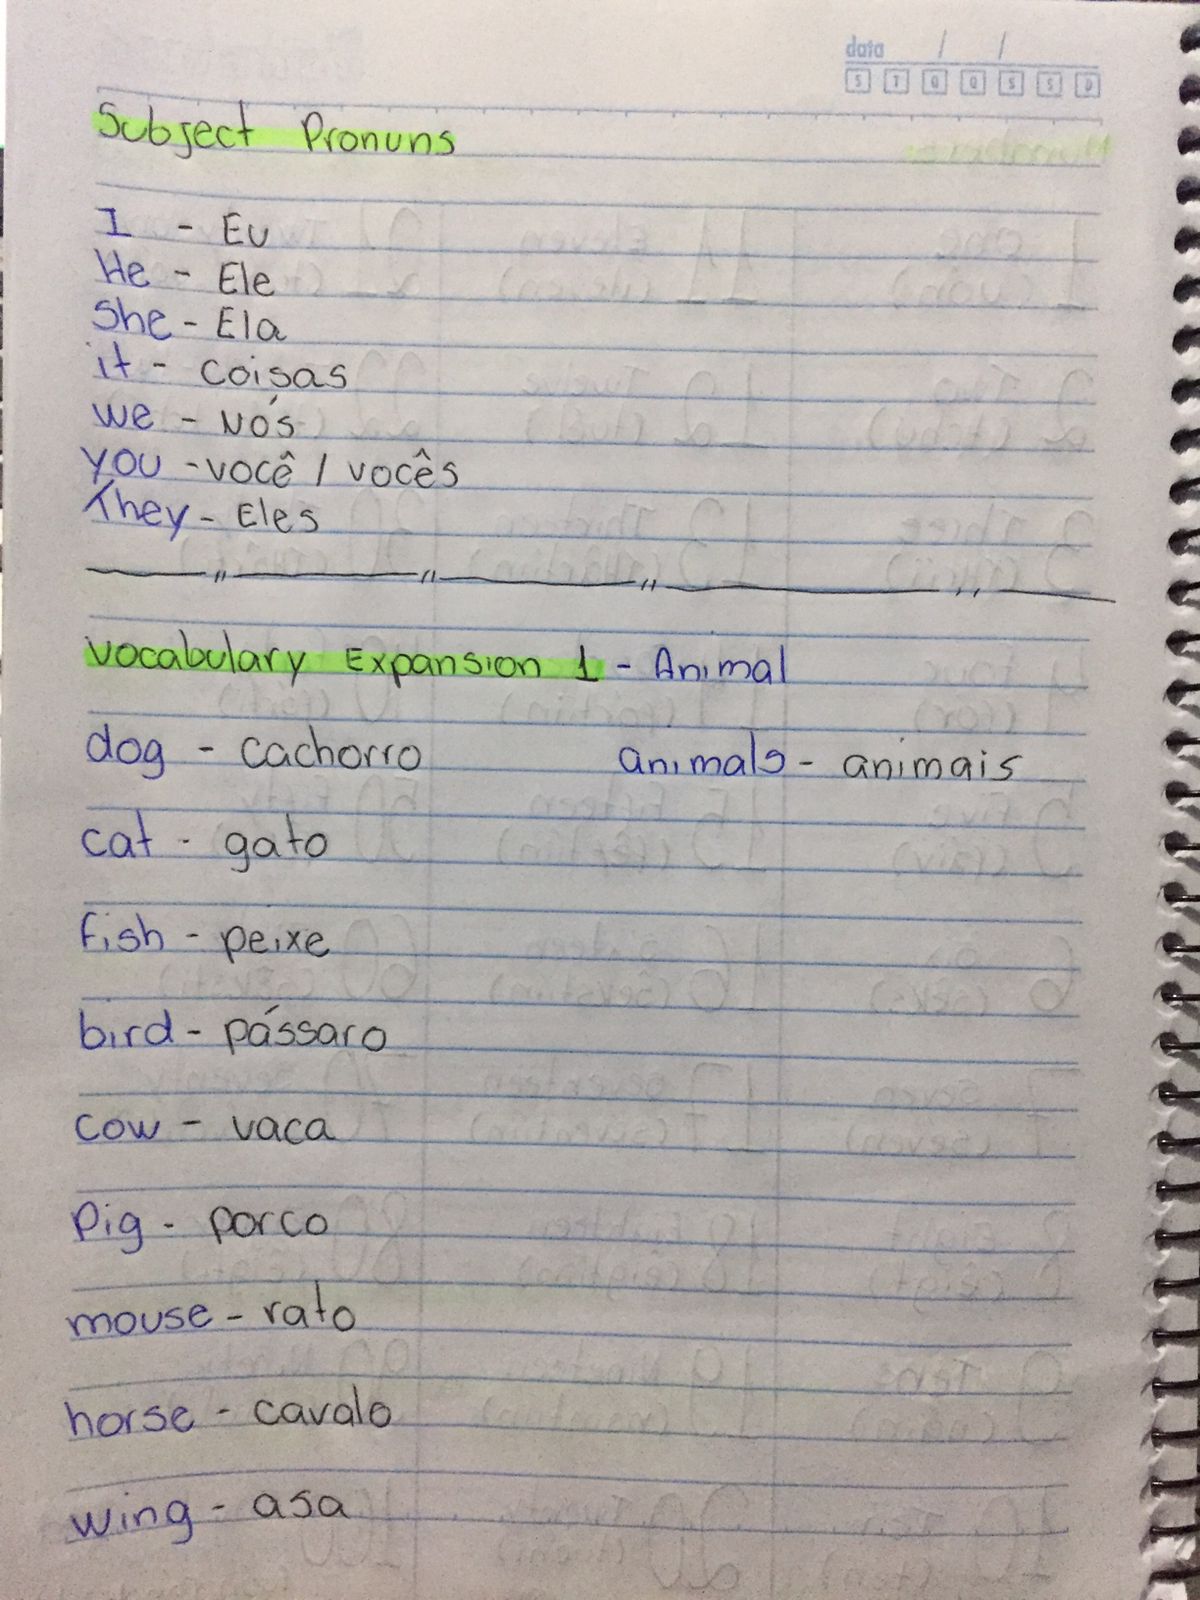 data / /
S T Q Q S S D
Subject Pronuns
I - Eu
He - Ele
She - Ela
it - coisas
we - Nós
you - você / vocês
They - Eles
Vocabulary Expansion 1 - Animal
dog - cachorro animals - animais
cat - gato
fish - peixe
bird - pássaro
cow - vaca
Pig - porco
mouse - rato
horse - cavalo
wing - asa